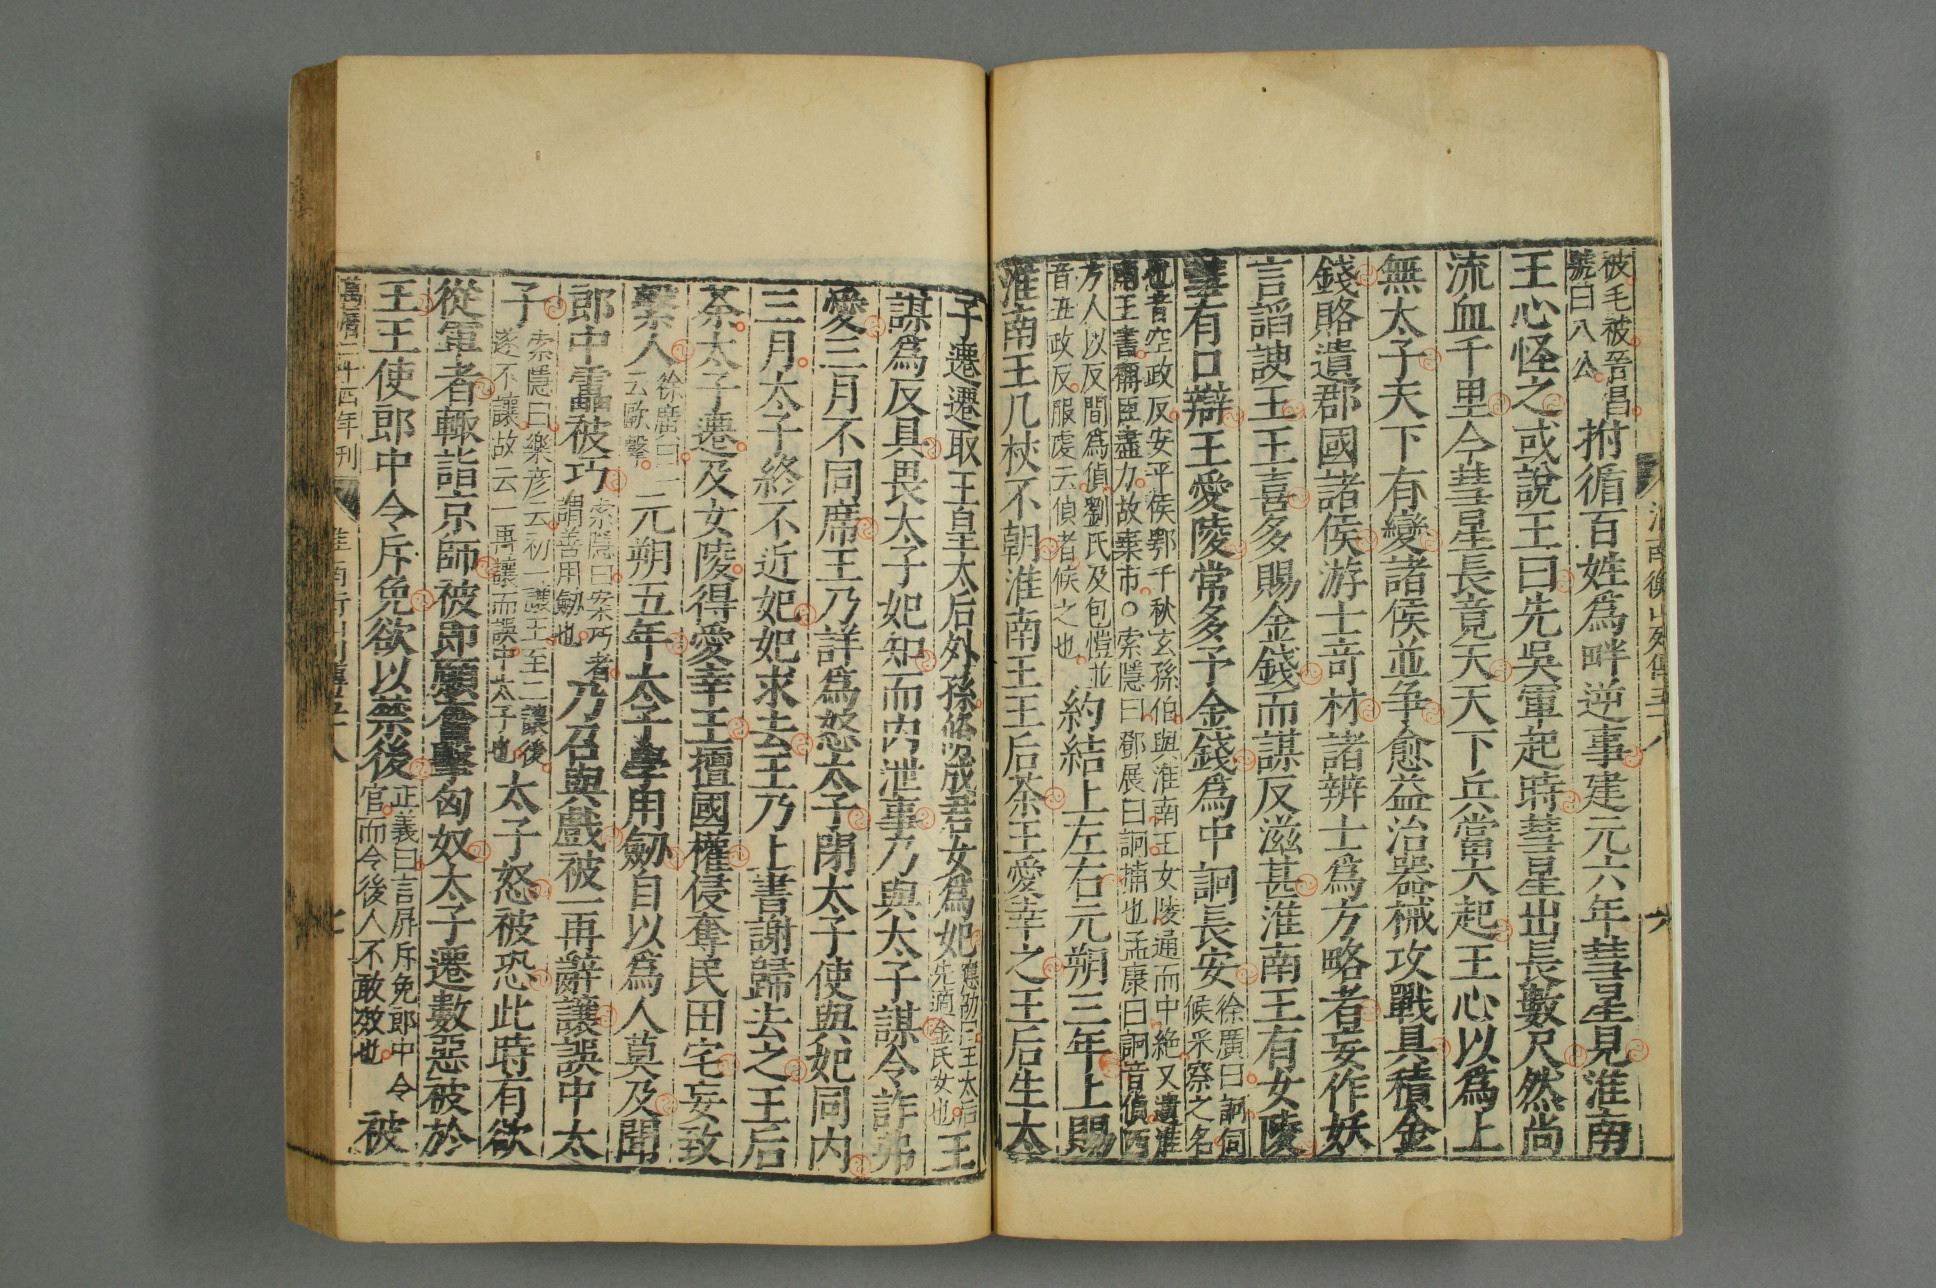 淮南衡山列傳五十八 六
被毛被晉昌
號曰八公 拊循百姓爲畔逆事建元六年彗星見淮南
王心怪之或說王曰先吳軍起時彗星出長數尺然尚
流血千里今彗星長竟天天下兵當大起王心以爲上
無太子天下有變諸侯並爭愈益治器械攻戰具積金
錢賂遺郡國諸侯游士奇材諸辨士爲方略者妄作妖
言諂諛王王喜多賜金錢而謀反滋甚淮南王有女陵
慧有口辯王愛陵常多予金錢爲中詗長安
徐廣曰詗伺
候采察之名
也音空政反安平侯鄂千秋玄孫伯與淮南王女陵通而中絶又遺淮
南王書稱臣盡力故棄市○索隱曰鄧展曰詗捕也孟康曰詗音偵西
方人以反間爲偵劉氏及包愷並
音丑政反服虔云偵者候之也 約結上左右元朔三年上賜
淮南王几杖不朝淮南王王后荼王愛幸之王后生太
子遷遷取王皇太后外孫脩成君女爲妃
應劭曰王太后
先適金氏女也 王
謀爲反具畏太子妃知而內泄事乃與太子謀令詐弗
愛三月不同席王乃詳爲怒太子閉太子使與妃同內
三月太子終不近妃妃求去王乃上書謝歸去之王后
荼太子遷及女陵得愛幸王擅國權侵奪民田宅妄致
繫人
徐廣曰一
云歐擊 元朔五年太子學用劒自以爲人莫及聞
郎中靁被巧
索隱曰案巧者
謂善用劒也 乃召與戲被一再辭讓誤中太
子
索隱曰樂彦云初一讓王至二讓後
遂不讓故云一再讓而誤中太子也 太子怒被恐此時有欲
從軍者輙詣京師被即願奮擊匈奴太子遷數惡被於
王王使郎中令斥免欲以禁後
正義曰言屏斥免郎中令
官而令後人不敢效也 被
萬曆二十四年刊 淮南衡山列傳五十八 七